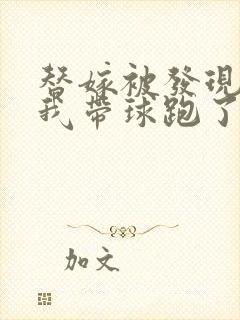 替嫁被發現
我帶球跑了
加文